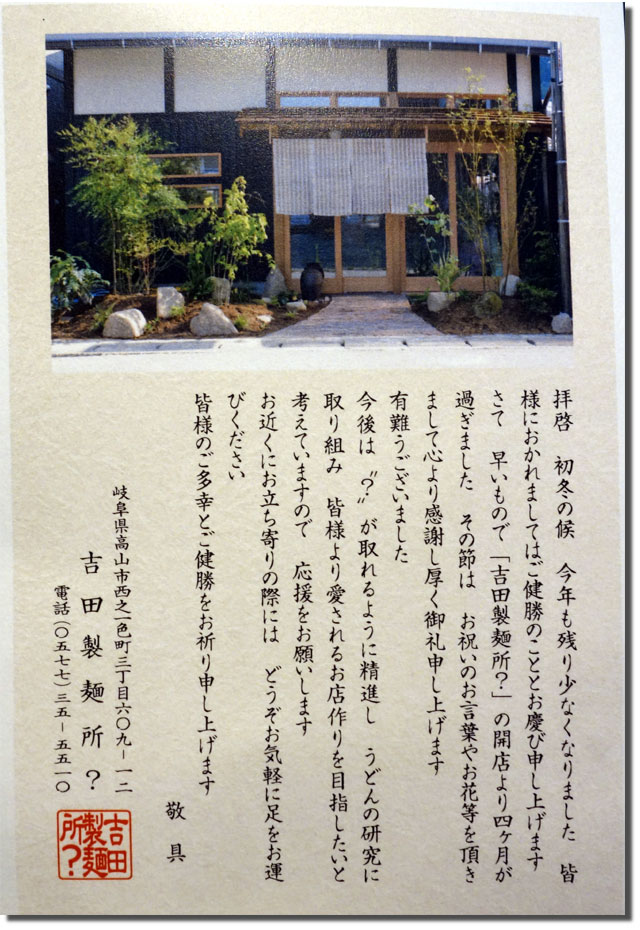 拝啓　初冬の候　今年も残り少なくなりました　皆
様におかれましてはご健勝のこととお慶び申し上げます
さて　早いもので「吉田製麺所？」の開店より四ヶ月が
過ぎました　その節は　お祝いのお言葉やお花等を頂き
まして心より感謝し厚く御礼申し上げます
有難うございました
今後は〝？〟が取れるように精進し　うどんの研究に
取り組み　皆様より愛されるお店作りを目指したいと
考えていますので　応援をお願いします
お近くにお立ち寄りの際には　どうぞお気軽に足をお運
びください
皆様のご多幸とご健勝をお祈り申し上げます
敬具
岐阜県高山市西之一色町三丁目六〇九－一二
吉田製麺所？
電話（〇五七七）三五－五五一〇
吉田
製麺
所？